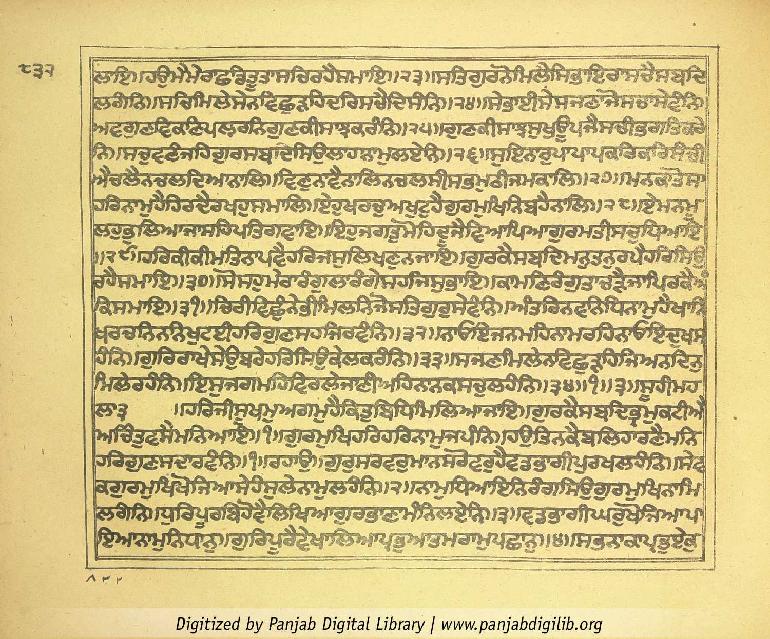 ੮੩੨
ਲਾਇ॥ਹਉਮੈਮੇਰਾਛਡਿਤੂਤਾਸਚਿਰਹੈਸਮਾਇ॥੨੩॥ਸਤਿਗੁਰਨੋਮਿਲੈਸਿਭਾਇਰਾਸਚੈਸਬਦਿ
ਲਗੰਨਿ॥ਸਚਿਮਿਲੇਸੇਨਵਿਛੁੜਹਿਦਰਿਸਚੈਦਿਸੰਨਿ॥੨੪॥ਸੇਭਾਈਸੇਸਜਣਾਜੋਸਚਾਸੇਵੰਨਿ॥
ਅਵਗਣਵਿਕਣਿਪਲਰਨਿਗੁਣਕੀਸਾਝਕਰੰਨਿ॥੨੫॥ਗੁਣਕੀਸਾਝਸੁਖੁਊਪਜੈਸਚੀਭਗਤਿਕਰੇ
ਨਿ॥ਸਚੁਵਣੰਜਹਿਗੁਰਸਬਦਿਸਿਉਲਾਹਾਨਾਮੁਲਏਨਿ॥੨੬॥ਸੁਇਨਾਰੁਪਾਪਾਪਕਰਿਕਰਿਸੰਚੀ
ਐਚਲੈਨਚਲਦਿਆਨਾਲਿ॥ਵਿਣੁਨਾਵੈਨਾਲਿਨਚਲਸੀਸਭਮੁਠੀਜਮਕਾਲਿ॥੨੭॥ਮਨਕਾਤੋਸਾ
ਹਰਿਨਾਮੁਹੈਹਿਰਦੈਰਖਹੁਸਮਾਲਿ॥ਏਹੁਖਰਚੁਅਖੁਟੁਹੈਗੁਰਮੁਖਿਨਿਬਹੈਨਾਲਿ॥੨੮॥ਏਮਨਮੂ
ਲਹੁਭੁਲਿਆਜਾਸਹਿਪਤਿਗਵਾਇ॥ਇਹੁਜਗਤੁਮੋਹਿਦੂਜੈਵਿਆਪਿਆਗੁਰਮਤੀਸਚੁਧਿਆਇ
॥੨੯॥ਹਰਿਕੀਕੀਮਤਿਨਪਵੈਹਰਿਜਸੁਲਿਖਣੁਨਜਾਇ॥ਗੁਰਕੈਸਬਦਿਮਨੁਤਨੁਰਪੈਹਰਿਸਿਉ
ਰਹੈਸਮਾਇ॥੩੦॥ਸੋਸਹੁਮੇਰਾਰੰਗੁਲਾਰੰਗੇਸਹਜਿਸੁਭਾਇ॥ਕਾਮਣਿਰੰਗੁਤਾਚੜੈਜਾਪਿਰਕੈਅੰ
ਕਿਸਮਾਇ॥੩੧॥ਚਿਰੀਵਿਛੁੰਨੇਭੀਮਿਲਨਿਜੋਸਤਿਗੁਰੁਸੇਵੰਨਿ॥ਅੰਤਰਿਨਵਨਿਧਿਨਾਮੁਹੈਖਾਨਿ
ਖਰਚਨਿਨਨਿਖੁਟਈਹਰਿਗੁਣਸਹਜਿਰਵੰਨਿ॥੩੨॥ਨਾਓਇਜਨਮਹਿਨਾਮਰਹਿਨਾਓਇਦੁਖਸ
ਹੰਨਿ॥ਗੁਰਿਰਾਖੇਸੇਉਬਰੇਹਰਿਸਿਉਕੇਲਕਰੰਨਿ॥੩੩॥ਸਜਣਮਿਲੇਨਵਿਛੁੜਹਿਜਿਅਨਦਿਨੁ
ਮਿਲੇਰਹੰਨਿ॥ਇਸੁਜਗਮਹਿਵਿਰਲੇਜਾਣੀਅਹਿਨਾਨਕਸਚੁਲਹੰਨਿ॥੩੪॥੧॥੩॥ਸੂਹੀਮਹ
ਲਾ੩ ॥ਹਰਿਜੀਸੂਖਮੁਅਗਮੁਹੈਕਿਤੁਬਿਧਿਮਿਲਿਆਜਾਇ॥ਗੁਰਕੈਸਬਦਿਭ੍ਰਮੁਕਟੀਐ
ਅਚਿੰਤੁਵਸੈਮਨਿਆਇ॥੧॥ਗੁਰਮੁਖਿਹਰਿਹਰਿਨਾਮੁਜਪੰਨਿ॥ਹਉਤਿਨਕੈਬਲਿਹਾਰਣੈਮਨਿ
ਹਰਿਗੁਣਸਦਾਰਵੰਨਿ॥੧॥ਰਹਾਉ॥ਗੁਰੁਸਰਵਰੁਮਾਨਸਰੋਵਰੁਹੈਵਡਭਾਗੀਪੁਰਖਲਹੰਨਿ॥ਸੇਵ
ਕਗੁਰਮੁਖਿਖੋਜਿਆਸੇਹੰਸੁਲੇਨਾਮੁਲਹੰਨਿ॥੨॥ਨਾਮੁਧਿਆਇਨਿਰੰਗਸਿਉਗੁਰਮੁਖਿਨਾਮਿ
ਲਗੰਨਿ॥ਧੁਰਿਪੂਰਬਿਹੋਵੈਲਿਖਿਆਗੁਰਭਾਣਾਮੰਨਿਲਏਨਿ॥੩॥ਵਡਭਾਗੀਘਰੁਖੋਜਿਆਪਾ
ਇਆਨਾਮੁਨਿਧਾਨੁ॥ਗੁਰਿਪੂਰੈਵੇਖਾਲਿਆਪ੍ਰਭੁਆਤਮਰਾਮੁਪਛਾਨੁ॥੪॥ਸਭਨਾਕਾਪ੍ਰਭੁਏਕੁ
Digitized by Panjab Digital Library | www.panjabdigilib.org